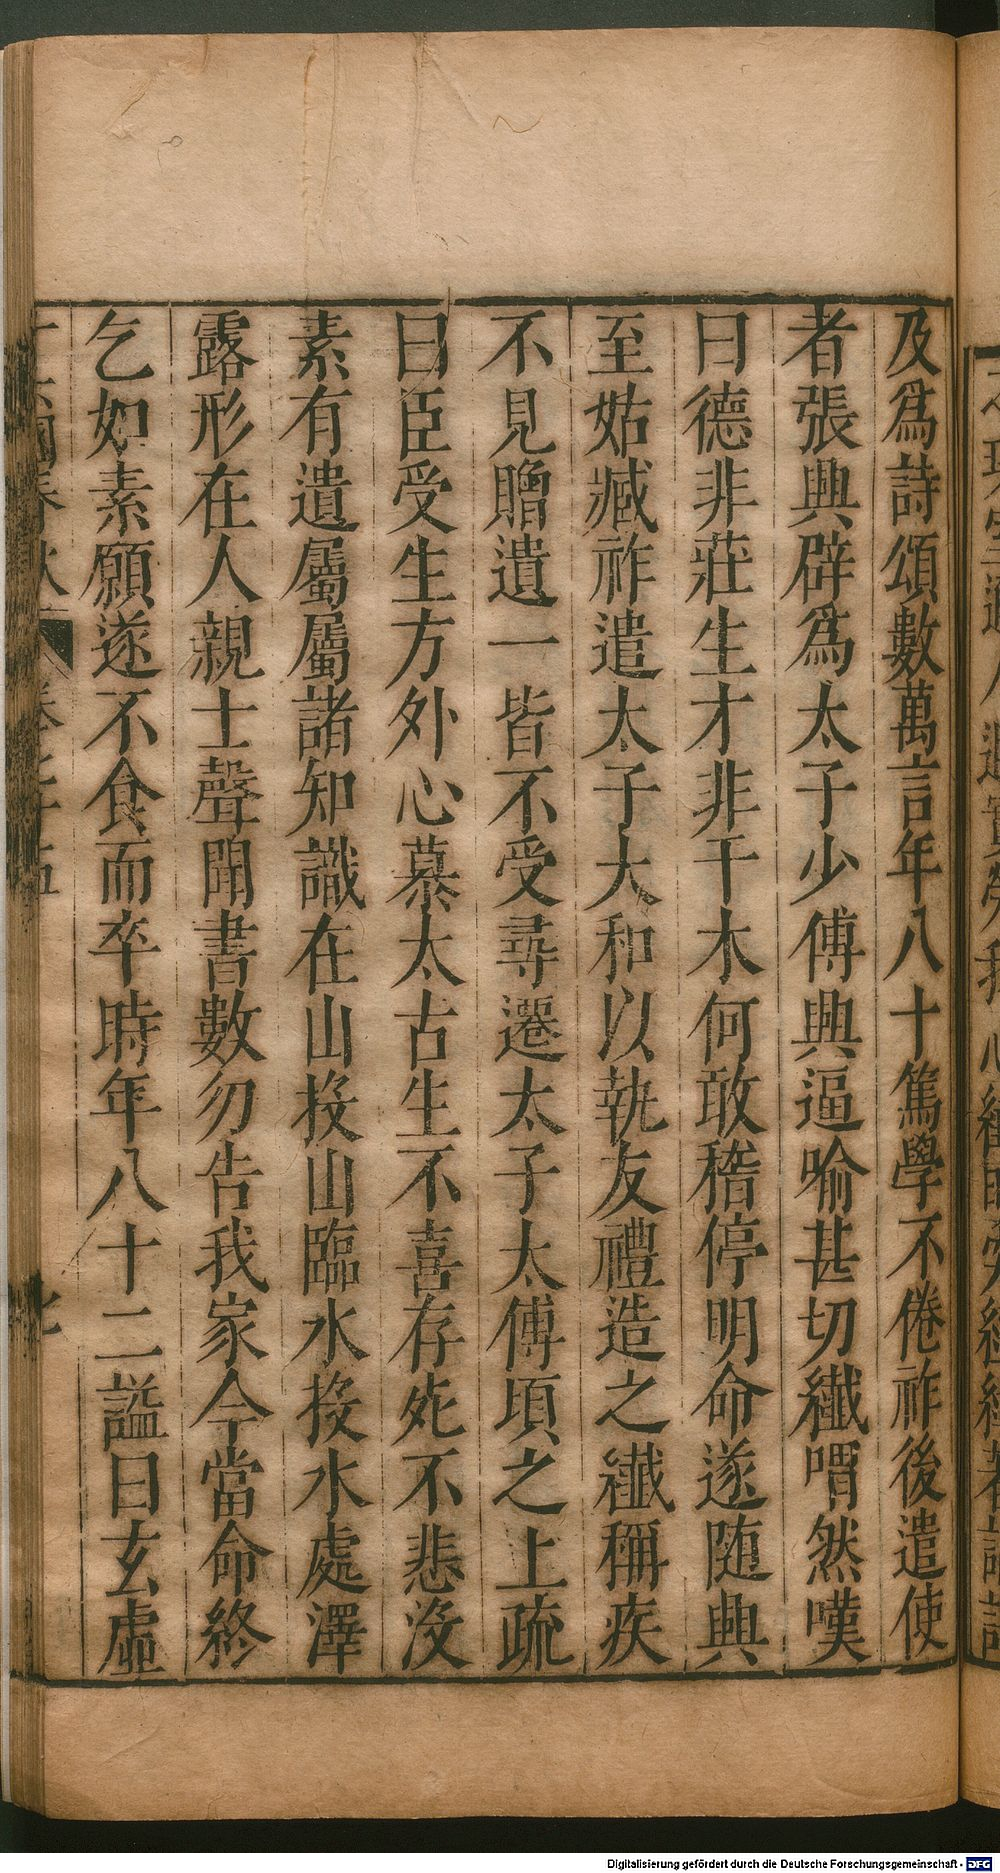 及爲詩頌數萬言年八十篤學不倦祚後遣使
者張興辟爲太子少傅興逼喻甚切纖喟然嘆
曰德非莊生才非干木何敢稽停明命遂随興
至姑臧祚遣太子太和以執友禮造之纖稱疾
不見贈遺一皆不受尋遷太子太傅頃之上疏
曰臣受生方外心慕太古生不喜存死不悲沒
素有遺屬屬諸知識在山投山臨水投水處澤
露形在人親士聲聞書數勿告我家今當命終
乞如素願遂不食而卒時年八十二謚曰玄虛
Digitalisierung gefördert durch die Deutsche Forschungsgemeinschaft - DFG